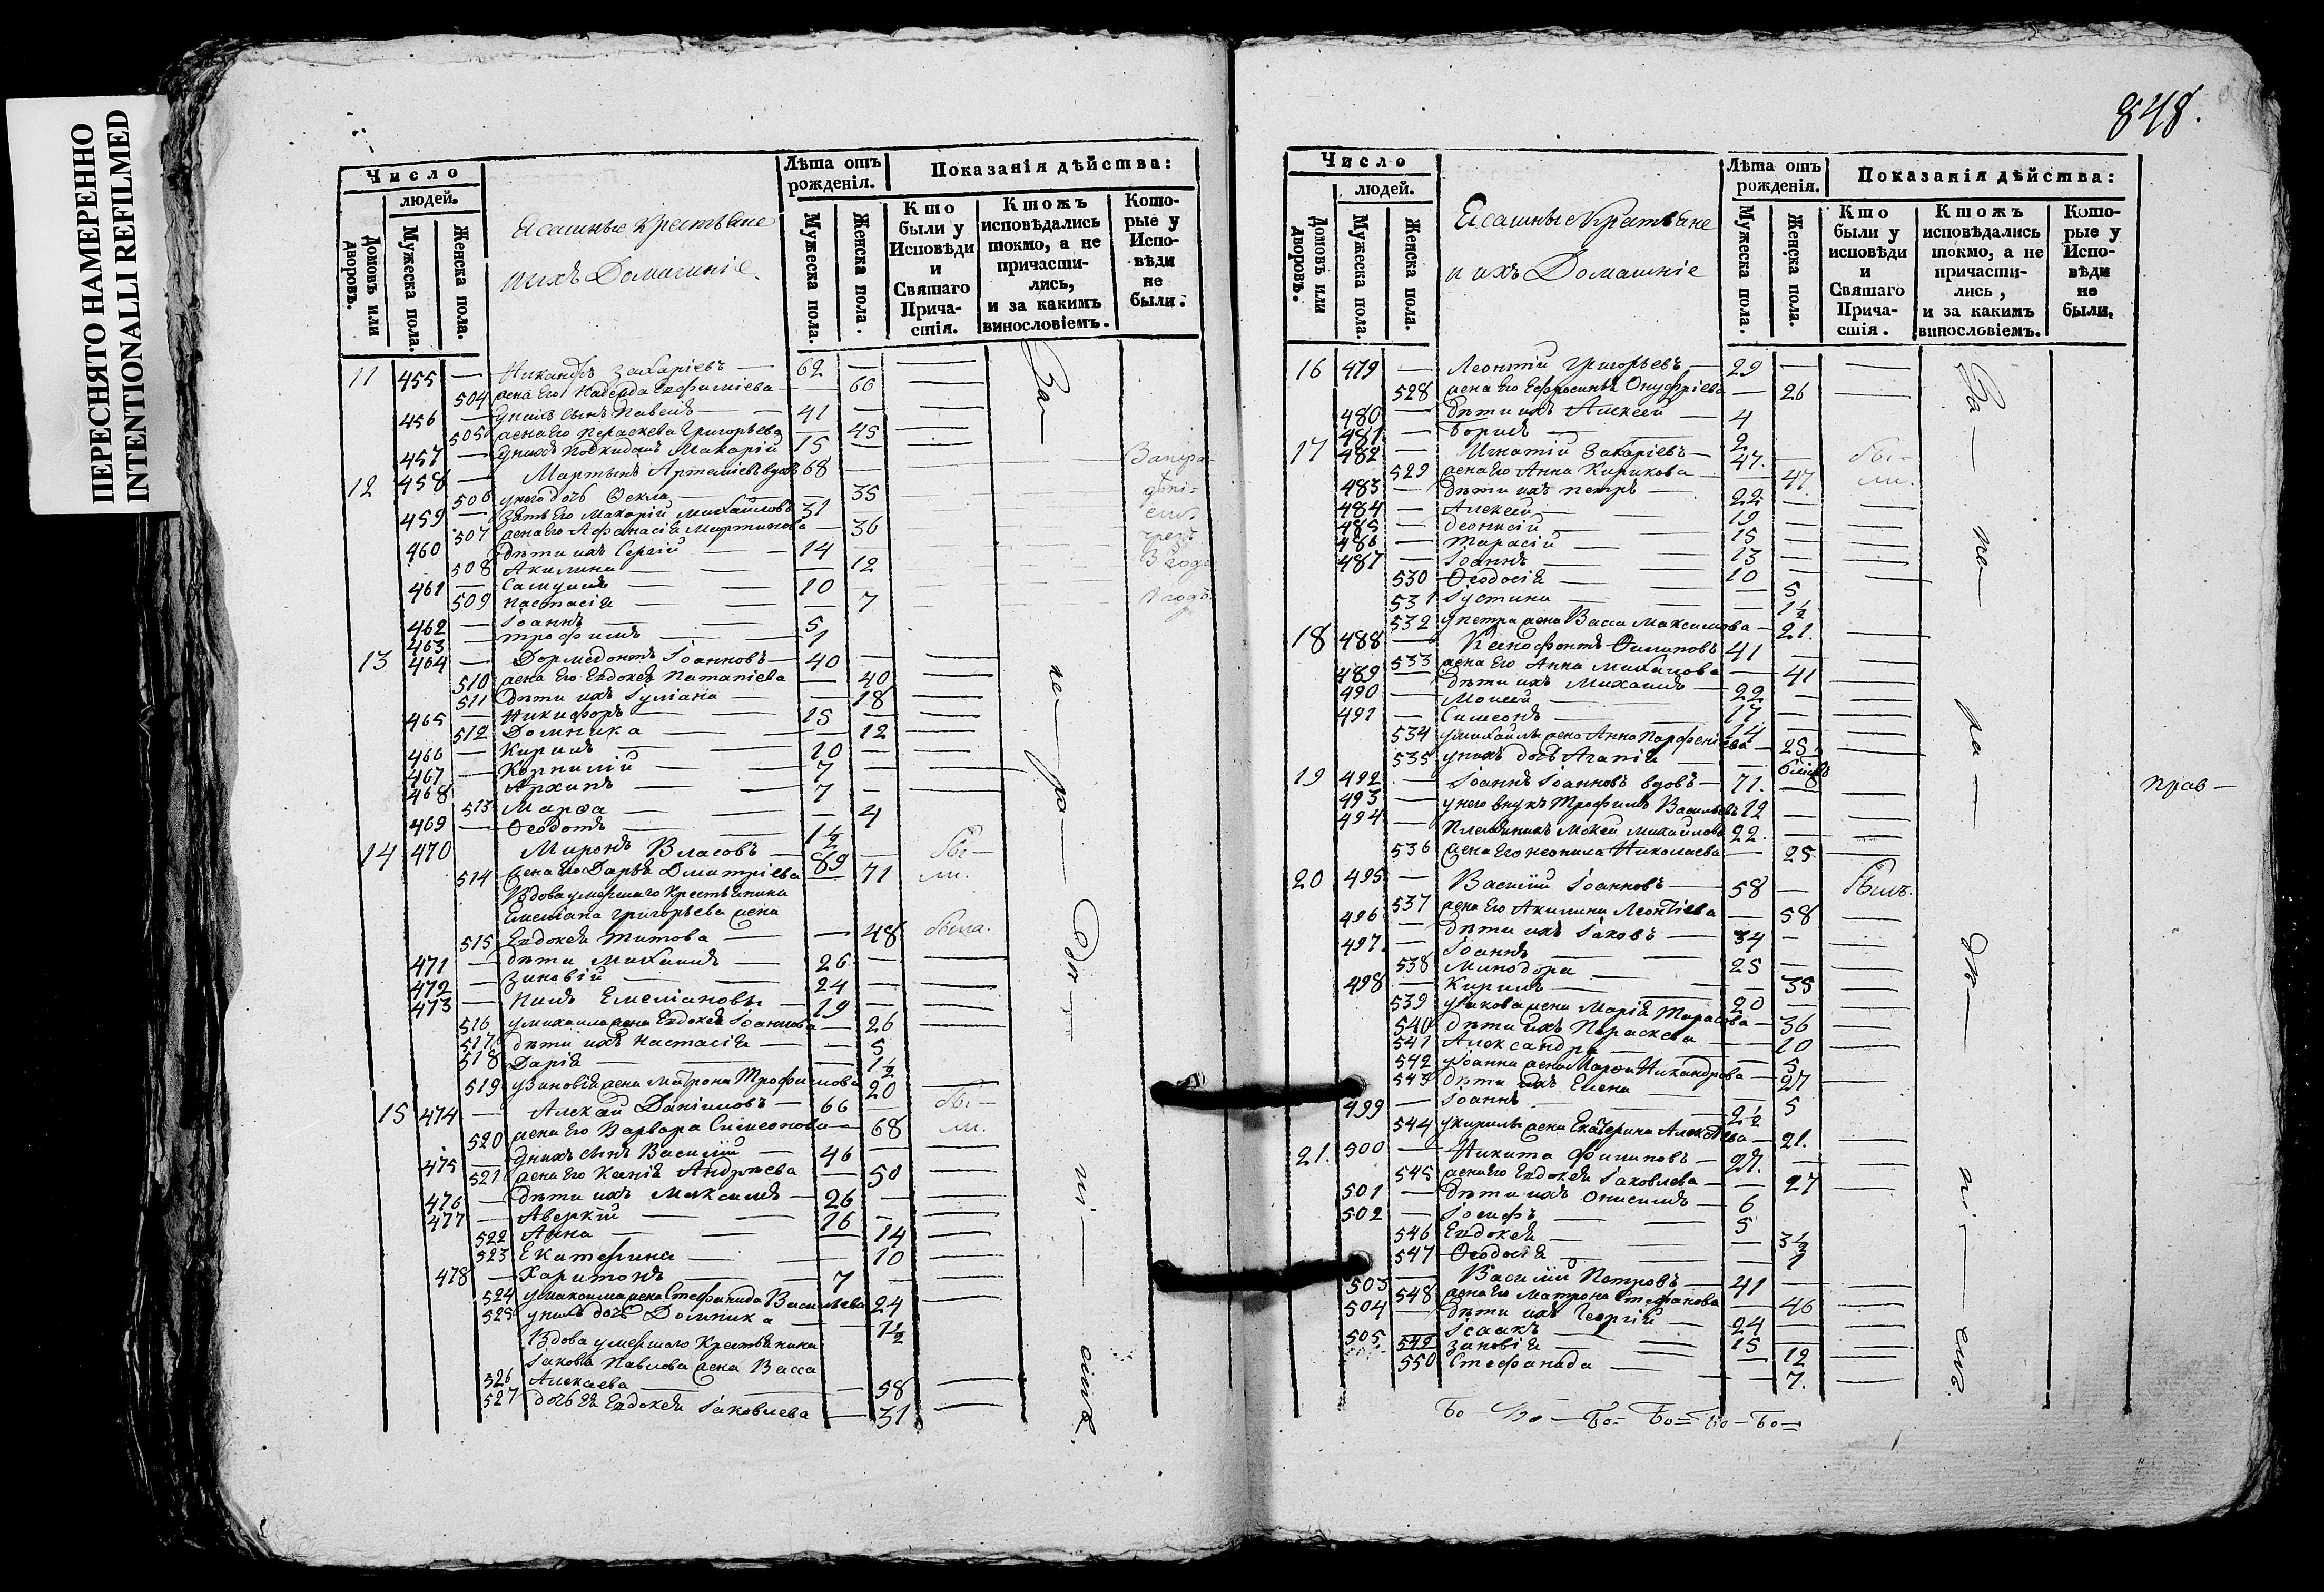 ПЕРЕСНЯТО НАМЕРЕННО
INTENTIONALLI REFILMED
Число
людей.
Домовъ или дворовъ.
Мужеска пола.
Женска пола.
Ясашные крестьяне
и ихъ Домашніе.
Лѣта отъ рожденія.
Мужеска пола.
Женска пола.
Показанія дѣйства:
Кто были у Исповѣди и Святаго Причастія.
Ктожъ исповѣдались токмо, а не причастились, и за какимъ винословіемъ.
Которые у Исповѣди не были.
11 455 — Никандръ Захаріевъ — 62 —
504 жена его Надежда Евфиміева — 60
456 — у нихъ сынъ Павелъ — 41 —
505 жена его Параскева Григорьева — 45
457 — у нихъ подкидышъ Макарій 15
12 458 — Мартынъ Артеміевъ вдовъ 68 —
506 у него дочь Ѳекла — 35
459 — зять его Макарій Михайловъ 31
507 жена его Афанасія Мартинова — 36
460 дѣти ихъ Сергій — 14
508 Акилина — 12
461 — Самуилъ — 10
509 Настасія — 7
462 — Іоаннъ — 5
463 — Трофимъ — 1
13 464 — Дормедонтъ Іоанновъ — 40 —
510 жена его Евдокея Потапіева — 40
511 дѣти ихъ Іуліана — 18
465 — Никифоръ — 15 —
512 Домника — 12
466 — Кирилъ — 10 —
467 — Корнилій — 7
468 — Архипъ — 7 —
513 Марѳа — 4
469 — Ѳеодотъ — 1½
14 470 Миронъ Власовъ — 89 — бы-
514 жена его Дарья Дмитріева — 71 ли.
Вдова умершаго Крестьянина
Емеліана Григорьева жена
515 Евдокея Титова — 48 была.
471 — дѣти Михаилъ — 26 —
472 — Зиновій — 24 —
473 — Нилъ Емеліановы — 19 —
516 у михаила жена Евдокея Іоаннова — 26
517 дѣти ихъ Настасія — 5
518 Дарія — 1½
519 у Зиновія жена Матрона Трофимова 20
15 474 — Алексѣй Даніиловъ — 66 — бы-
520 жена его Варвара Симеонова — 68 ли.
475 — у нихъ сынъ Василій — 46 —
521 жена его Ксенія Андрѣева — 50
476 — дѣти ихъ Максимъ — 26 —
477 — Аверкій — 16 —
522 Анна — 14
523 Екатерина — 10
478 — Харитонъ — 7 —
524 у максима жена Стефанида Васильева 24
525 у нихъ дочь Домника — 1½
Вдова умершаго Крестьянина
Іакова Павлова жена Васса
526 Алексѣева — 58
527 дочь ея Евдокея Іаковлева — 31
За
не
ра
дѣ
ні
емъ.
848.
Число
людей.
Домовъ или дворовъ.
Мужеска пола.
Женска пола.
Ясашные Крестьяне
и ихъ Домашніе
Лѣта отъ рожденія.
Мужеска пола.
Женска пола.
Показанія дѣйства:
Кто были у исповѣди и Святаго Причастія.
Ктожъ исповѣдались токмо, а не причастились, и за какимъ винословіемъ.
Которые у Исповѣди не были.
16 479 — Леонтій Григорьевъ — 29 —
528 жена его Ефросинья Онуфріева — 26
480 — дѣти ихъ Алексѣй — 4
481 — Борисъ — 2
17 482 — Игнатій Захаріевъ — 47. — бы-
529 жена его Анна Кирикова — 47 ли.
483 — дѣти ихъ Петръ — 22 —
484 — Алексѣй — 19 —
485 — Деонисій — 15 —
486 — Тарасій — 13 —
487 — Іоаннъ — 10 —
530 Ѳеодосія — 5
531 Іустина — 1½
532 у петра жена Васса Максимова — 21.
18 488 — Ксенофонтъ Филиповъ 41 —
533 жена его Анна Михайлова — 41
489 — дѣти ихъ Михаилъ — 22 —
490 — Моисей — 17 —
491 — Симеонъ — 14 —
534 у михаила жена Анна Парфеніева — 25
535 у нихъ дочь Агапія —
19 492 — Іоаннъ Іоанновъ вдовъ — 71. —
493 — у него внукъ Трофимъ Васильевъ 12 —
494 — Племянникъ Мокей Михайловъ 22. —
536 жена его Неонила Николаева — 25
20 495 — Василій Іоанновъ — 58 — былъ.
537 жена его Акилина Леонтіева — 58
496 — дѣти ихъ Іаковъ — 34 —
497. — Іоаннъ — 25 —
538 Минодора — 35
498 — Кирилъ — 20 —
539 у іакова жена Марія Тарасова — 36
540 дѣти ихъ Параскева — 10
541 Александра — 5
542 у Іоанна жена Марѳа Никандрова — 27
543 дѣти ихъ Елена — 5
499 — Іоаннъ — 2½
544 у кирилы жена Екатерина Алексѣева — 21.
21. 500 — Никита Филиповъ — 27. —
545 жена его Евдокея Іаковлева — 27
501 — дѣти ихъ Онисимъ — 6
502 — Іосифъ — 5
546 Евдокея — 3½
547 Ѳеодосія — 1
503 — Василій Петровъ — 41 —
548 жена его Матрона Стефанова — 46
504 — дѣти ихъ Георгій — 24 —
505. — Ісаакъ — 15 —
549 Зиновія — 12
550 Стефанида — 7.
За
не
ра
дѣ
ні
емъ.
прав —